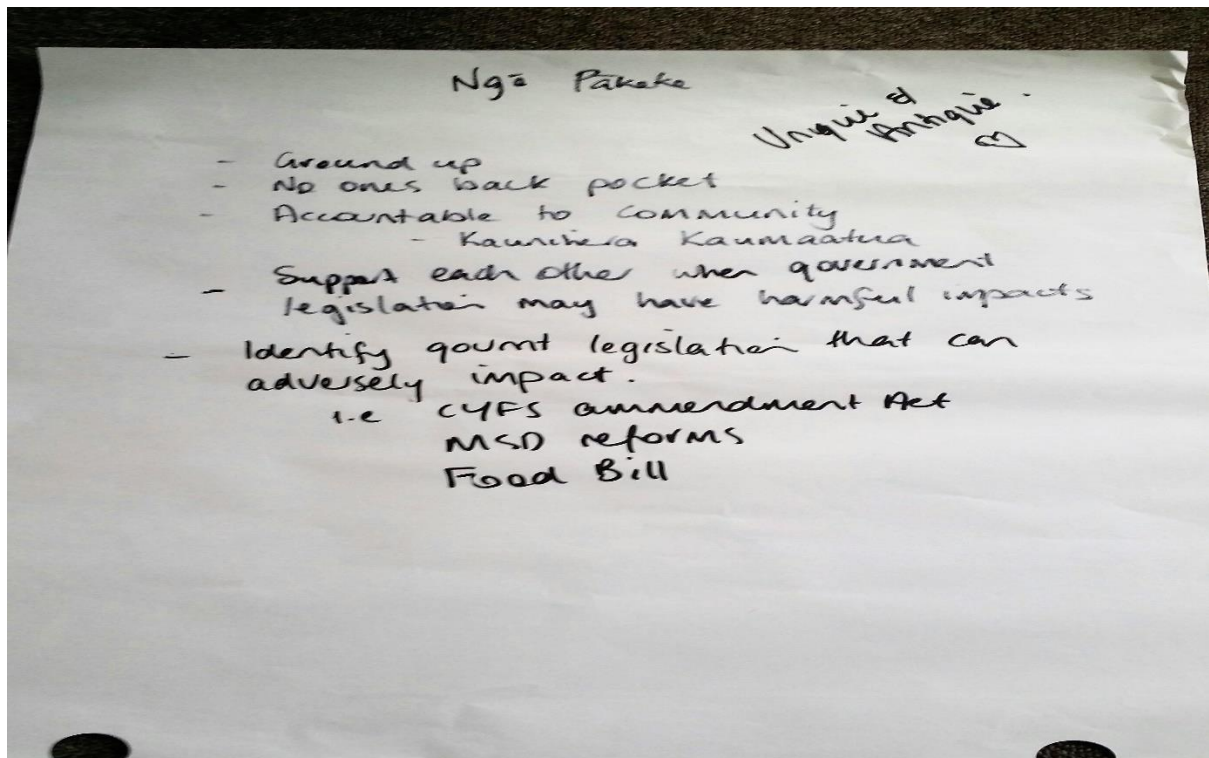 Ngā Pākeke
Unique &
Antique.
- Ground up
- No ones back pocket
- Accountable to community
- Kaunihera Kaumaatua
- Support each other when government
legislation may have harmful impacts
- Identify govmt legislation that can
adversely impact.
i.e CYFS ammendment Act
MSD reforms
Food Bill